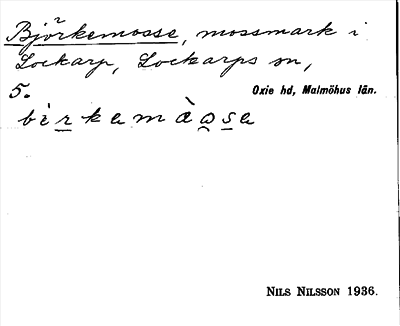 Björkemosse, mossmark i
Lockarp, Lockarps sn,
5.
Oxie hd, Malmöhus län.
NILS NILSSON 1936.